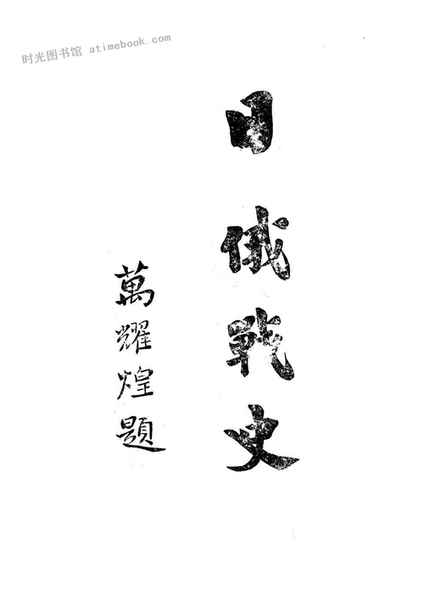 时光图书馆 atimebook.com
日俄戰史
萬耀煌題